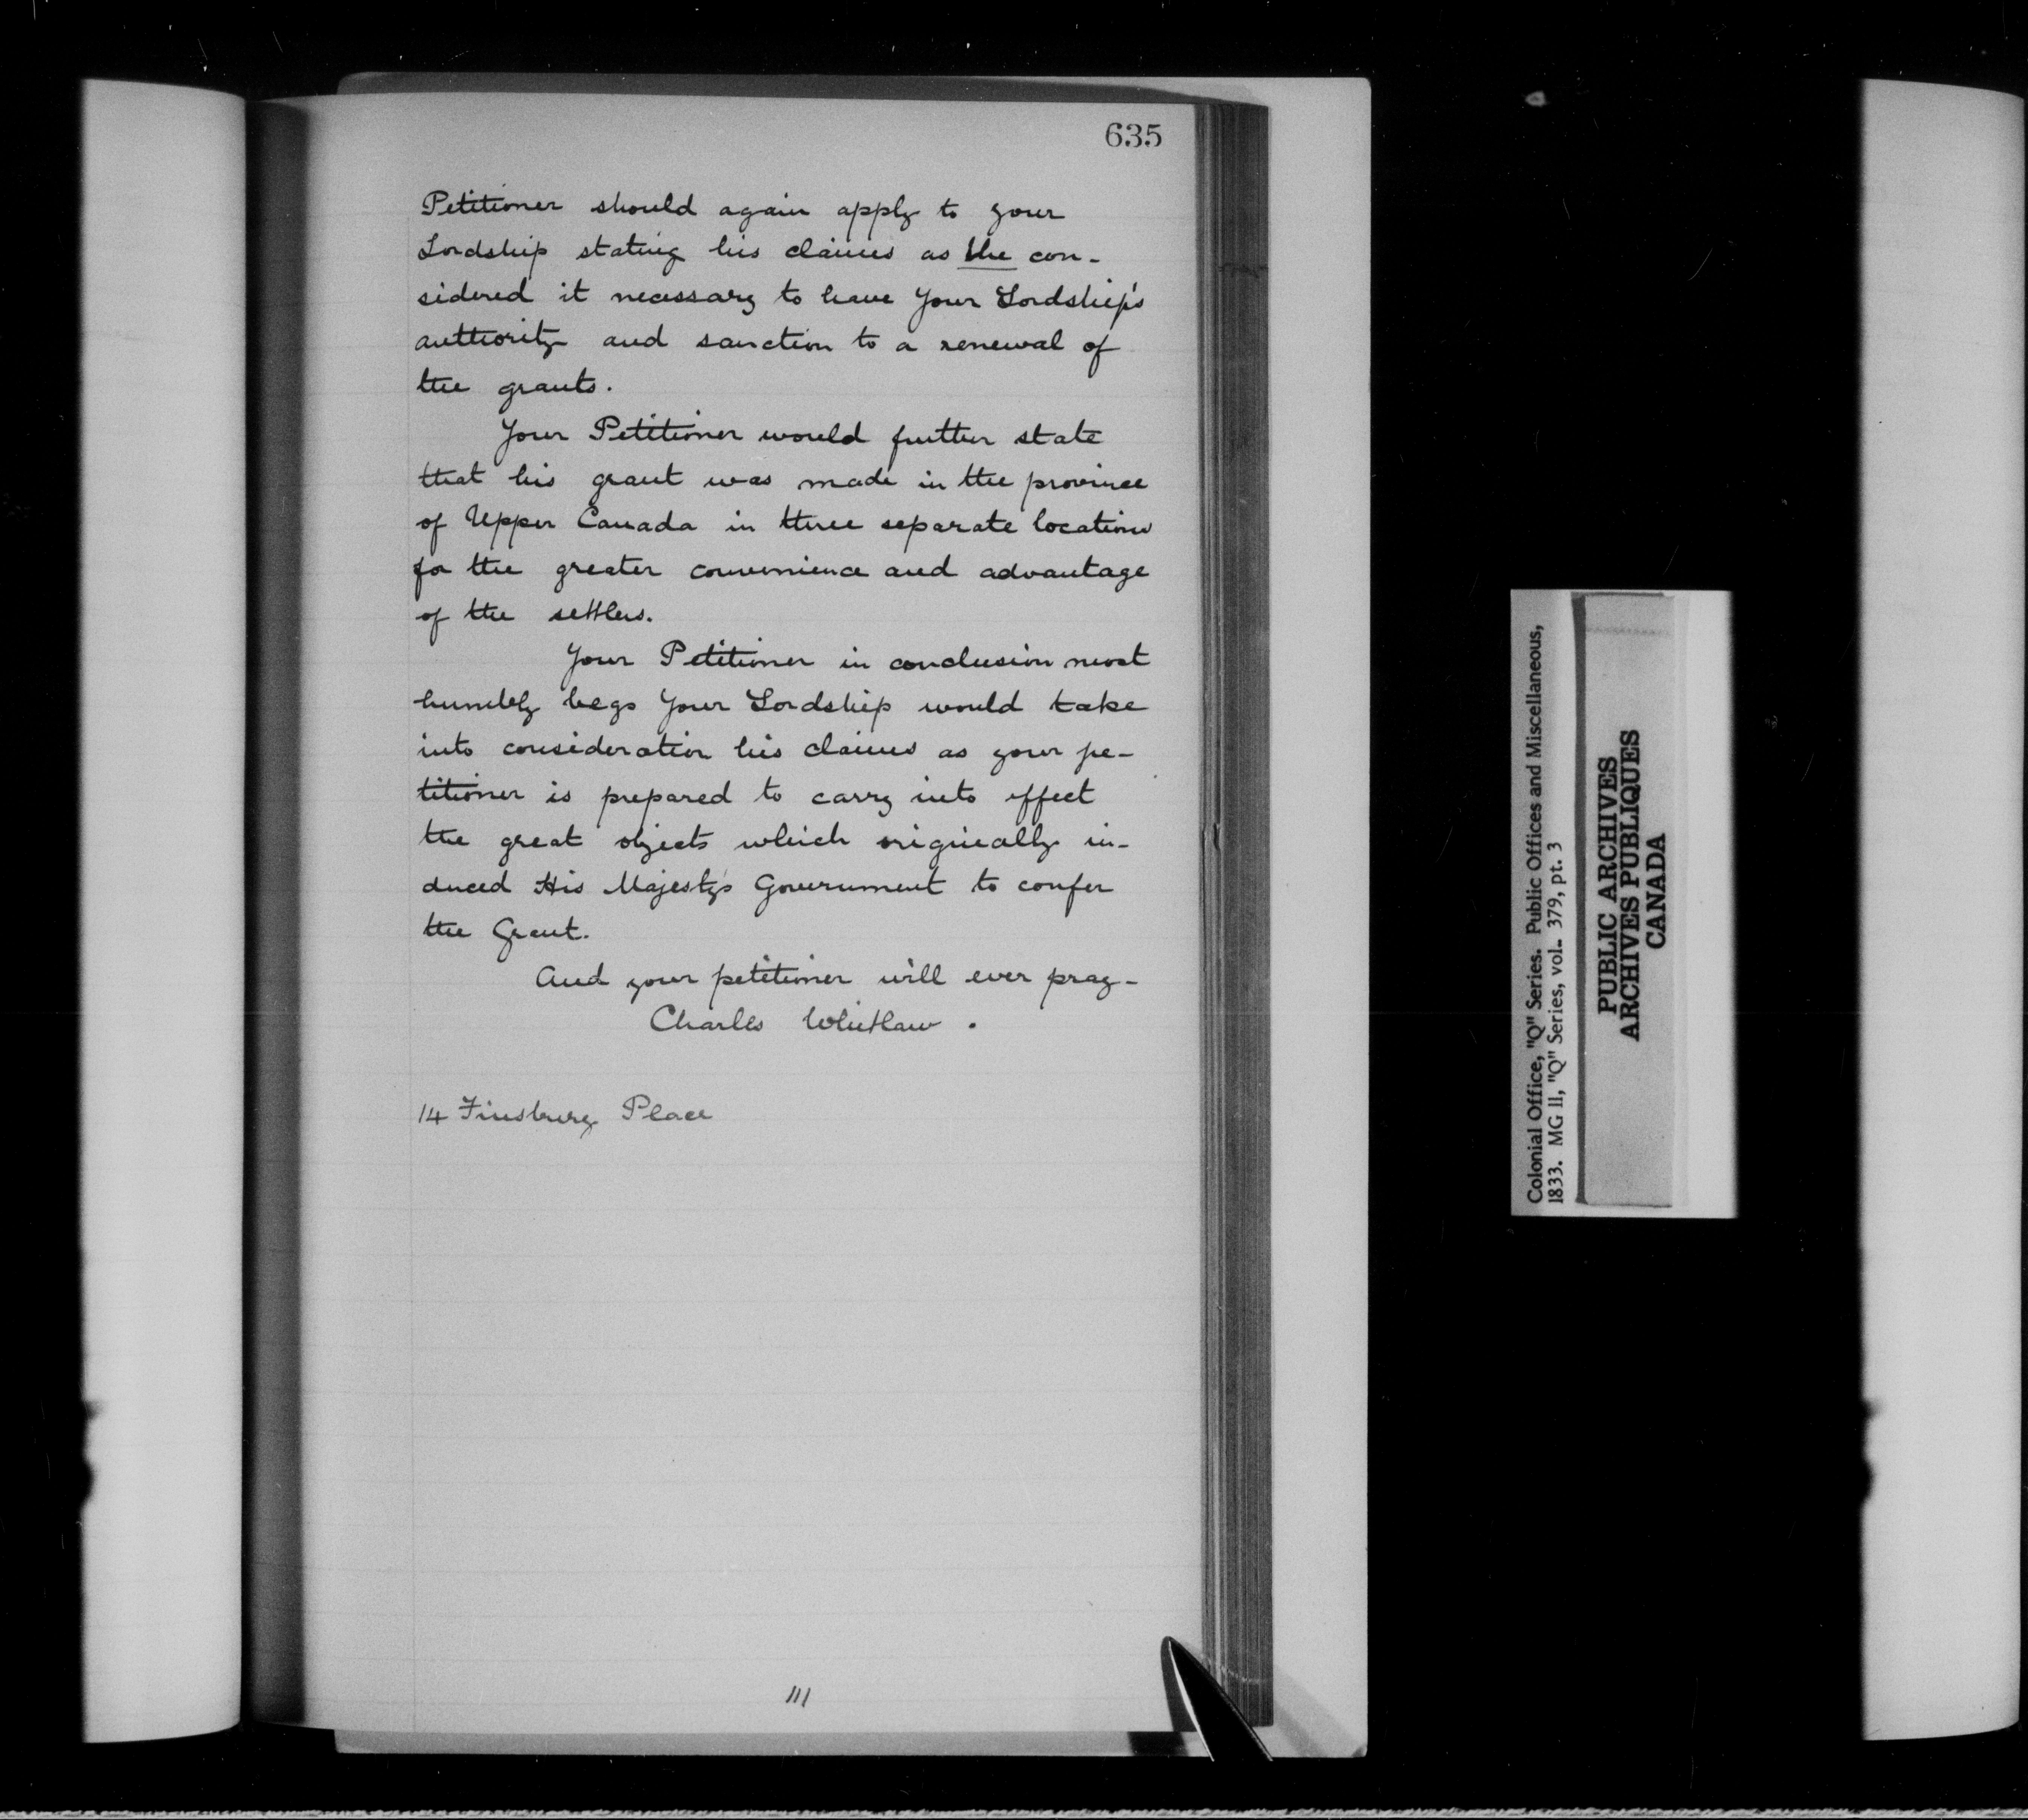 635
Petitioner should again apply to your
Lordship stating his claims as the con-
sidered it necessary to have Your Lordship's
authority and sanction to a renewal of
the grants.
Your Petitioner would further state
that his grant was made in the province
of Upper Canada in three separate locations
for the greater convenience and advantage
of the settlers.
Your Petitioner in conclusion most
humbly begs Your Lordship would take
into consideration his claims as your pe-
titioner is prepared to carry into effect
the great objects which originally in-
duced His Majesty's Government to confer
the Grant.
And your petitioner will ever pray-
Charles Whitlaw.
14 Finsbury Place
111
Colonial Office, "Q" Series. Public Offices and Miscellaneous,
1833. MG 11, "Q" Series, vol. 379, pt. 3
PUBLIC ARCHIVES
ARCHIVES PUBLIQUES
CANADA